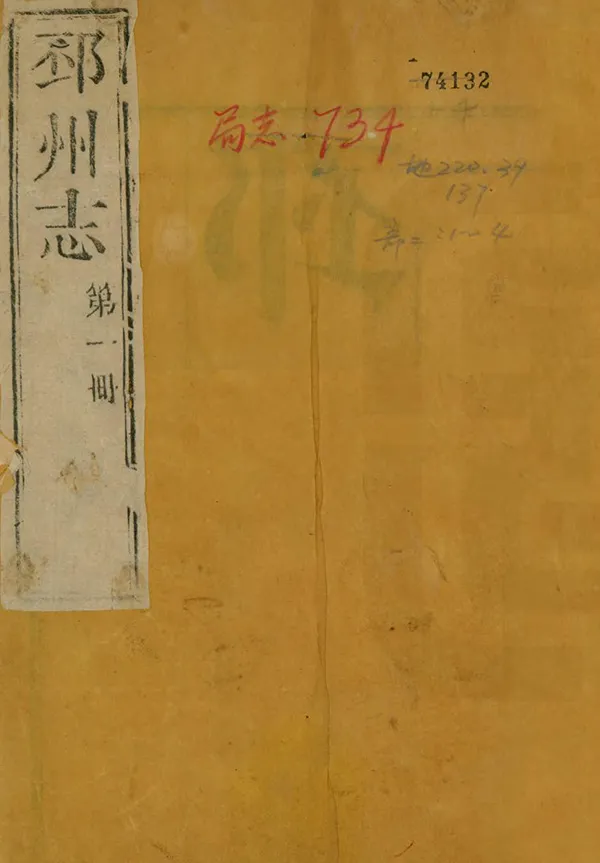 邳州志
第一冊
74132
局志 734
地220.39
137